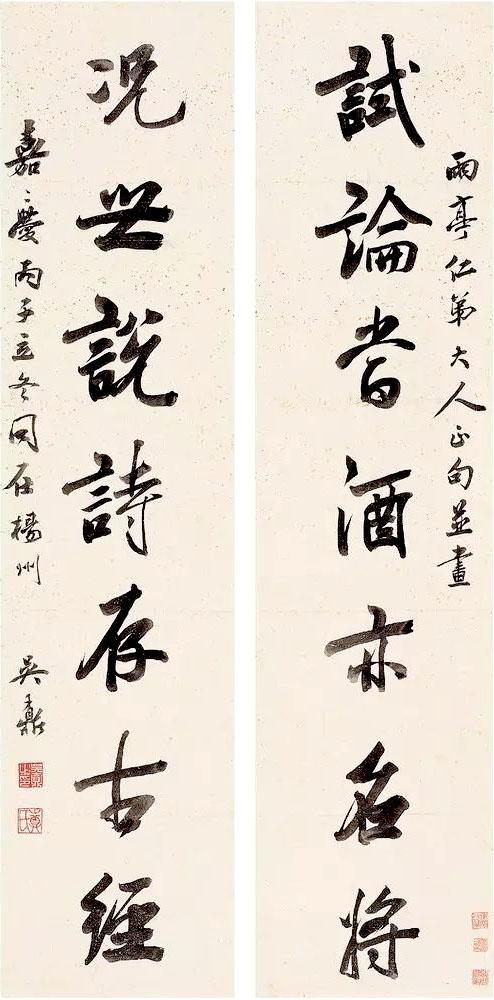 雨亭仁弟大人正句並書
試論嘗酒亦名將
況世說詩存古經
嘉慶丙子立冬同在楊州
吳鼒